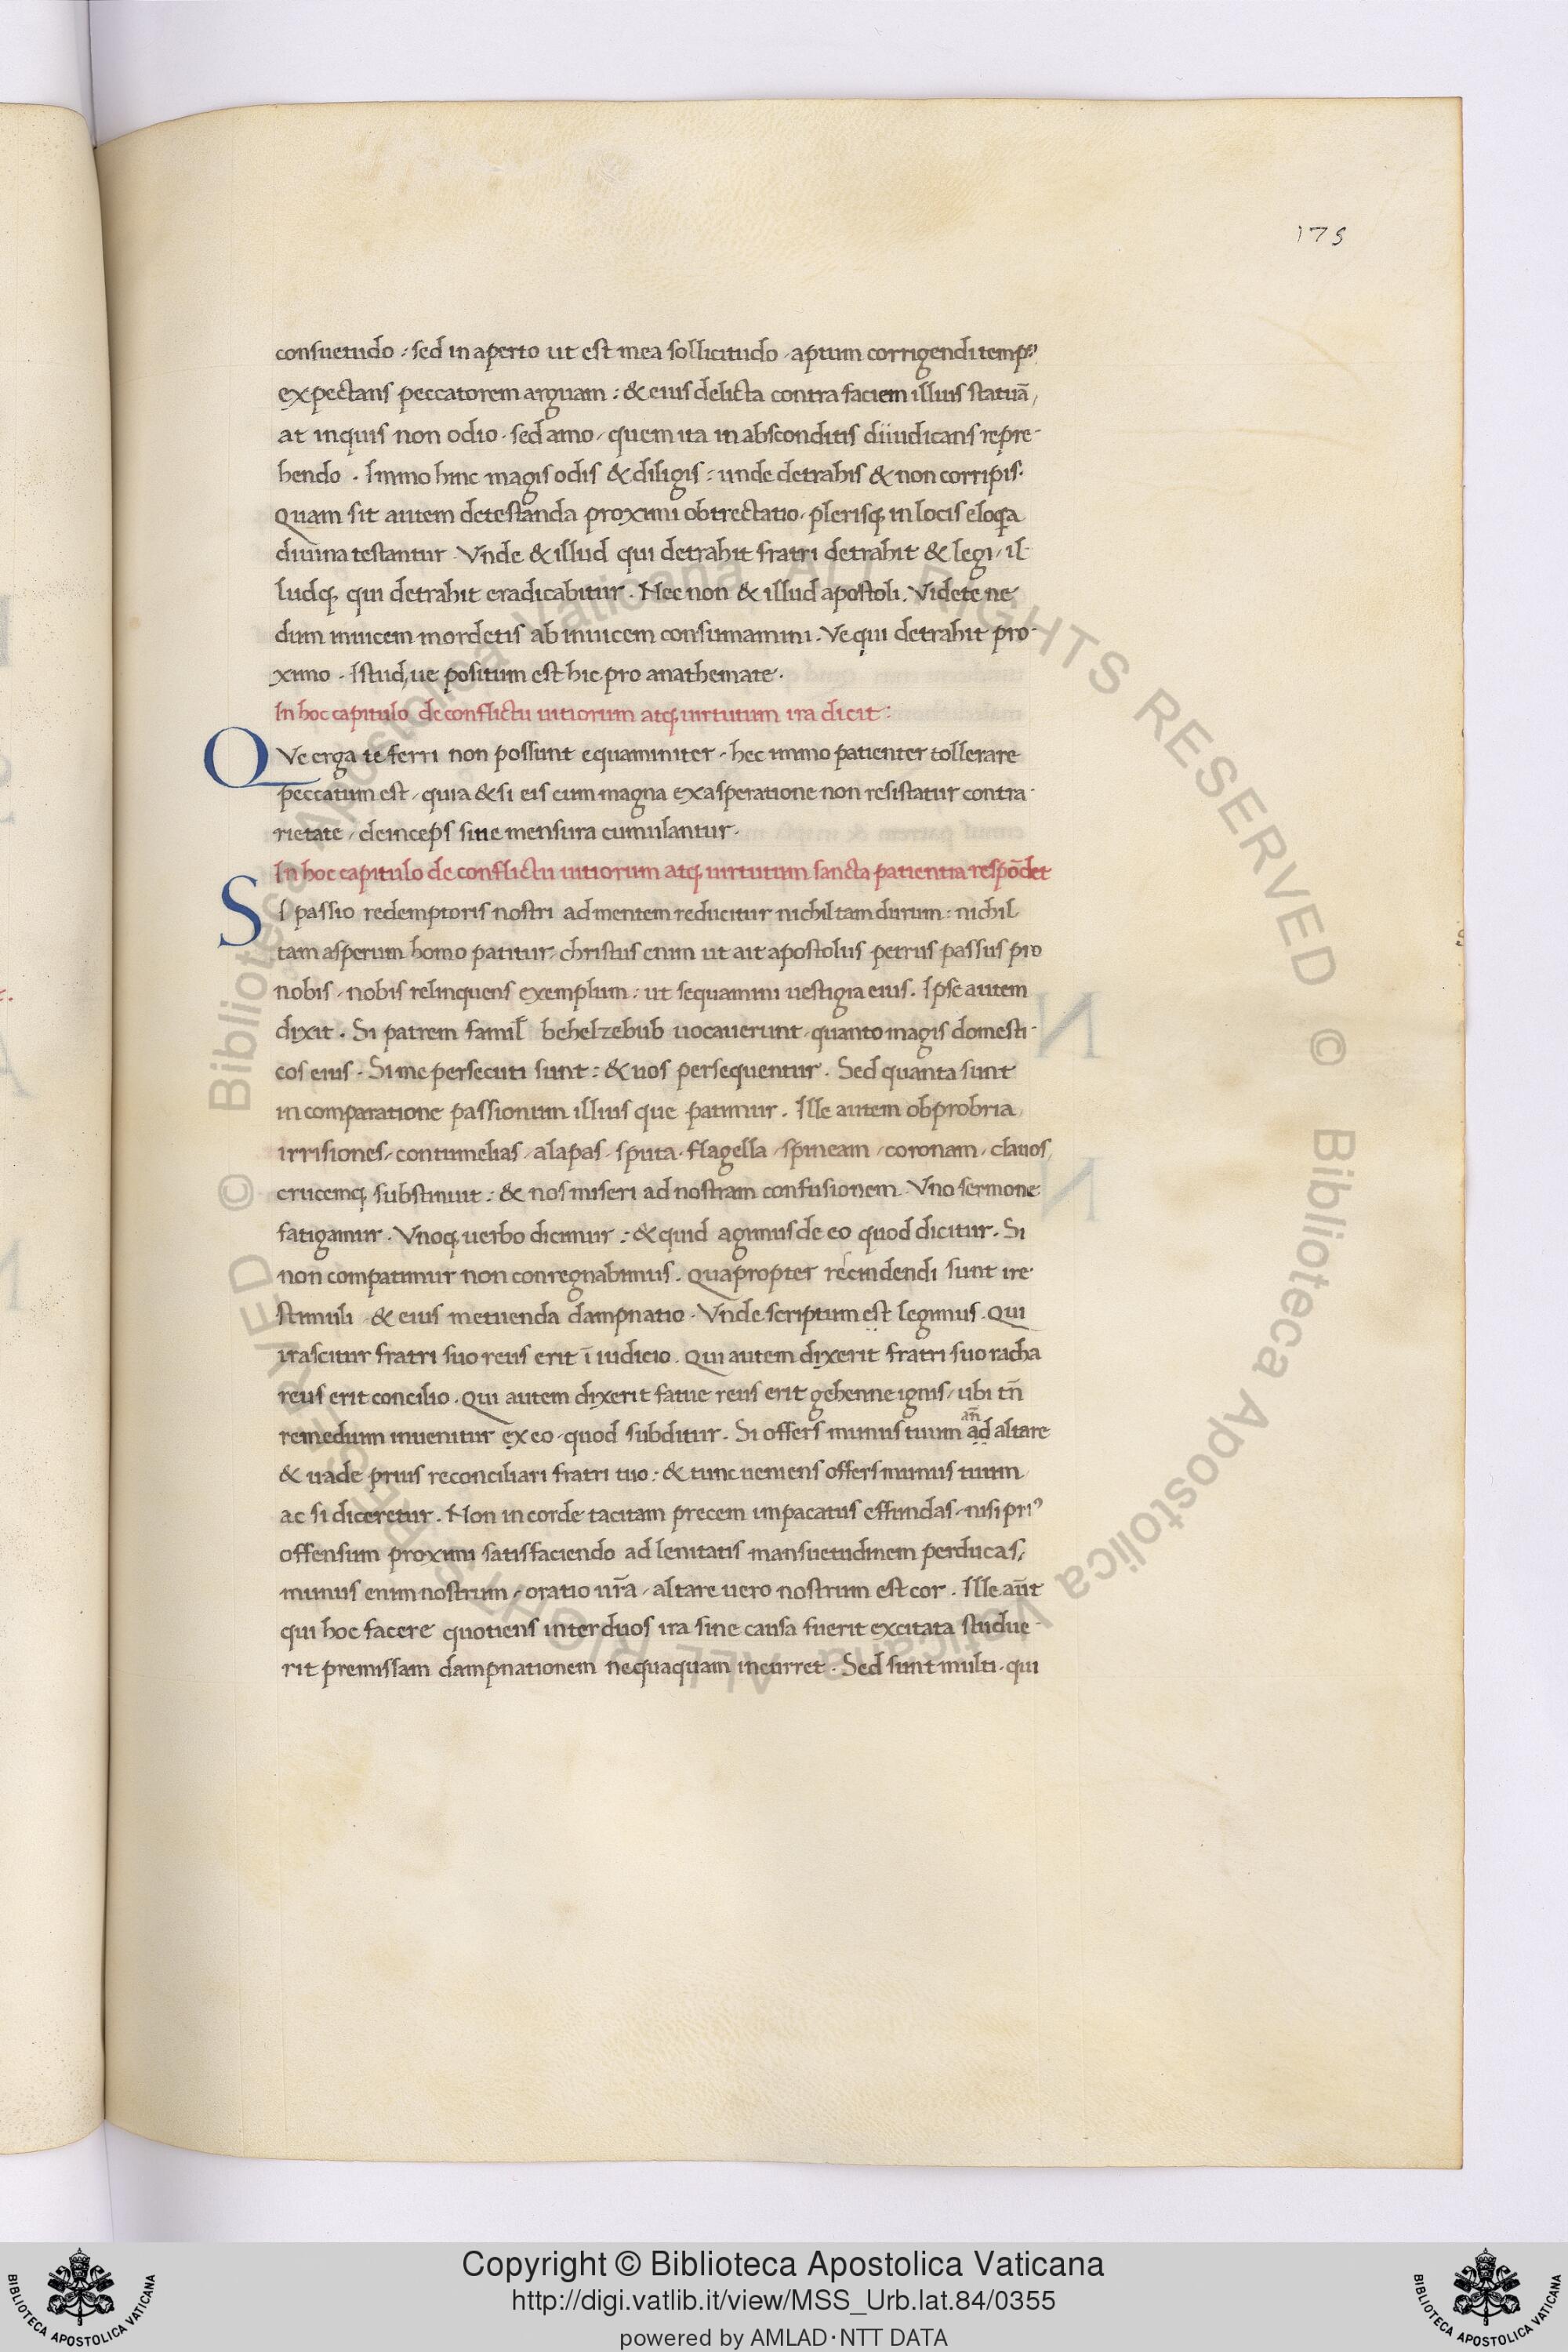 175
consuetudo : sed in aperto ut est mea sollicitudo / aptum corrigendi tempꝰ
expectans peccatorem arguam : & eius delicta contra faciem illius statuā /
at inquis non odio · sed amo / quem ita in absconditis diiudicans repre-
hendo . Immo hinc magis odis & diligis : unde detrahis & non corripis.
Quam sit autem detestanda proximi obtrectatio / plerisq; in locis eloq̄a
diuina testantur . Vnde & illud qui detrahit fratri detrahit & legi / il-
ludq; qui detrahit eradicabitur . Nec non & illud apostoli . Videte ne
dum inuicem mordetis ab inuicem consumamini . Ve qui detrahit pro-
ximo . Istud ue positum est hic pro anathemate .
In hoc capitulo de conflictu uitiorum atq; uirtutum ira dicit :
QVe erga te ferri non possunt equaminiter / hec immo patienter tollerare
peccatum est / quia & si eis cum magna exasperatione non resistatur contra-
rietate / deinceps sine mensura cumulantur .
In hoc capitulo de conflictu uitiorum atq; uirtutum sancta patientia respōdet
SI passio redemptoris nostri ad mentem reducitur nichil tam durum : nichil
tam asperum homo patitur / christus enim ut ait apostolus petrus passus pro
nobis / nobis relinquens exemplum : ut sequamini uestigia eius . Ipse autem
dixit . Si patrem famil̄ behelzebub uocauerunt / quanto magis domesti-
cos eius . Si me persecuti sunt : & uos persequentur . Sed quanta sunt
in comparatione passionum illius que patimur . Ille autem obprobria
irrisiones / contumelias / alapas / sputa / flagella / spineam / coronam / clauos /
crucemq; substinuit : & nos miseri ad nostram confusionem . Vno sermone
fatigamur . Vnoq; uerbo dicimur : & quid agimus de eo quod dicitur . Si
non compatimur non conregnabimus . Quapropter recindendi sunt ire
stimuli / & eius metuenda dampnatio . Vnde scriptum est legimus . Qui
irascitur fratri suo reus erit ī iudicio . Qui autem dixerit fratri suo racha
reus erit concilio . Qui autem dixerit fatue reus erit gehenne ignis / ubi tn̄
remedium inuenitur ex eo / quod subditur . Si offers munus tuum ad an̄ altare
& uade prius reconciliari fratri tuo : & tunc ueniens offers munus tuum
ac si diceretur . Non in corde tacitam precem impacatus effundas / nisi priꝰ
offensum proximi satisfaciendo ad lenitatis mansuetudinem perducas /
munus enim nostrum / oratio ur̄a / altare uero nostrum est cor . Ille aūt
qui hoc facere quotiens inter duos ira sine causa fuerit excitata studue-
rit premissam dampnationem nequaquam incurret . Sed sunt multi / qui
Copyright © Biblioteca Apostolica Vaticana
http://digi.vatlib.it/view/MSS_Urb.lat.84/0355
powered by AMLAD·NTT DATA
BIBLIOTECA APOSTOLICA VATICANA
BIBLIOTECA APOSTOLICA VATICANA
© Biblioteca Apostolica Vaticana ALL RIGHTS RESERVED © Biblioteca Apostolica Vaticana ALL RIGHTS RESERVED